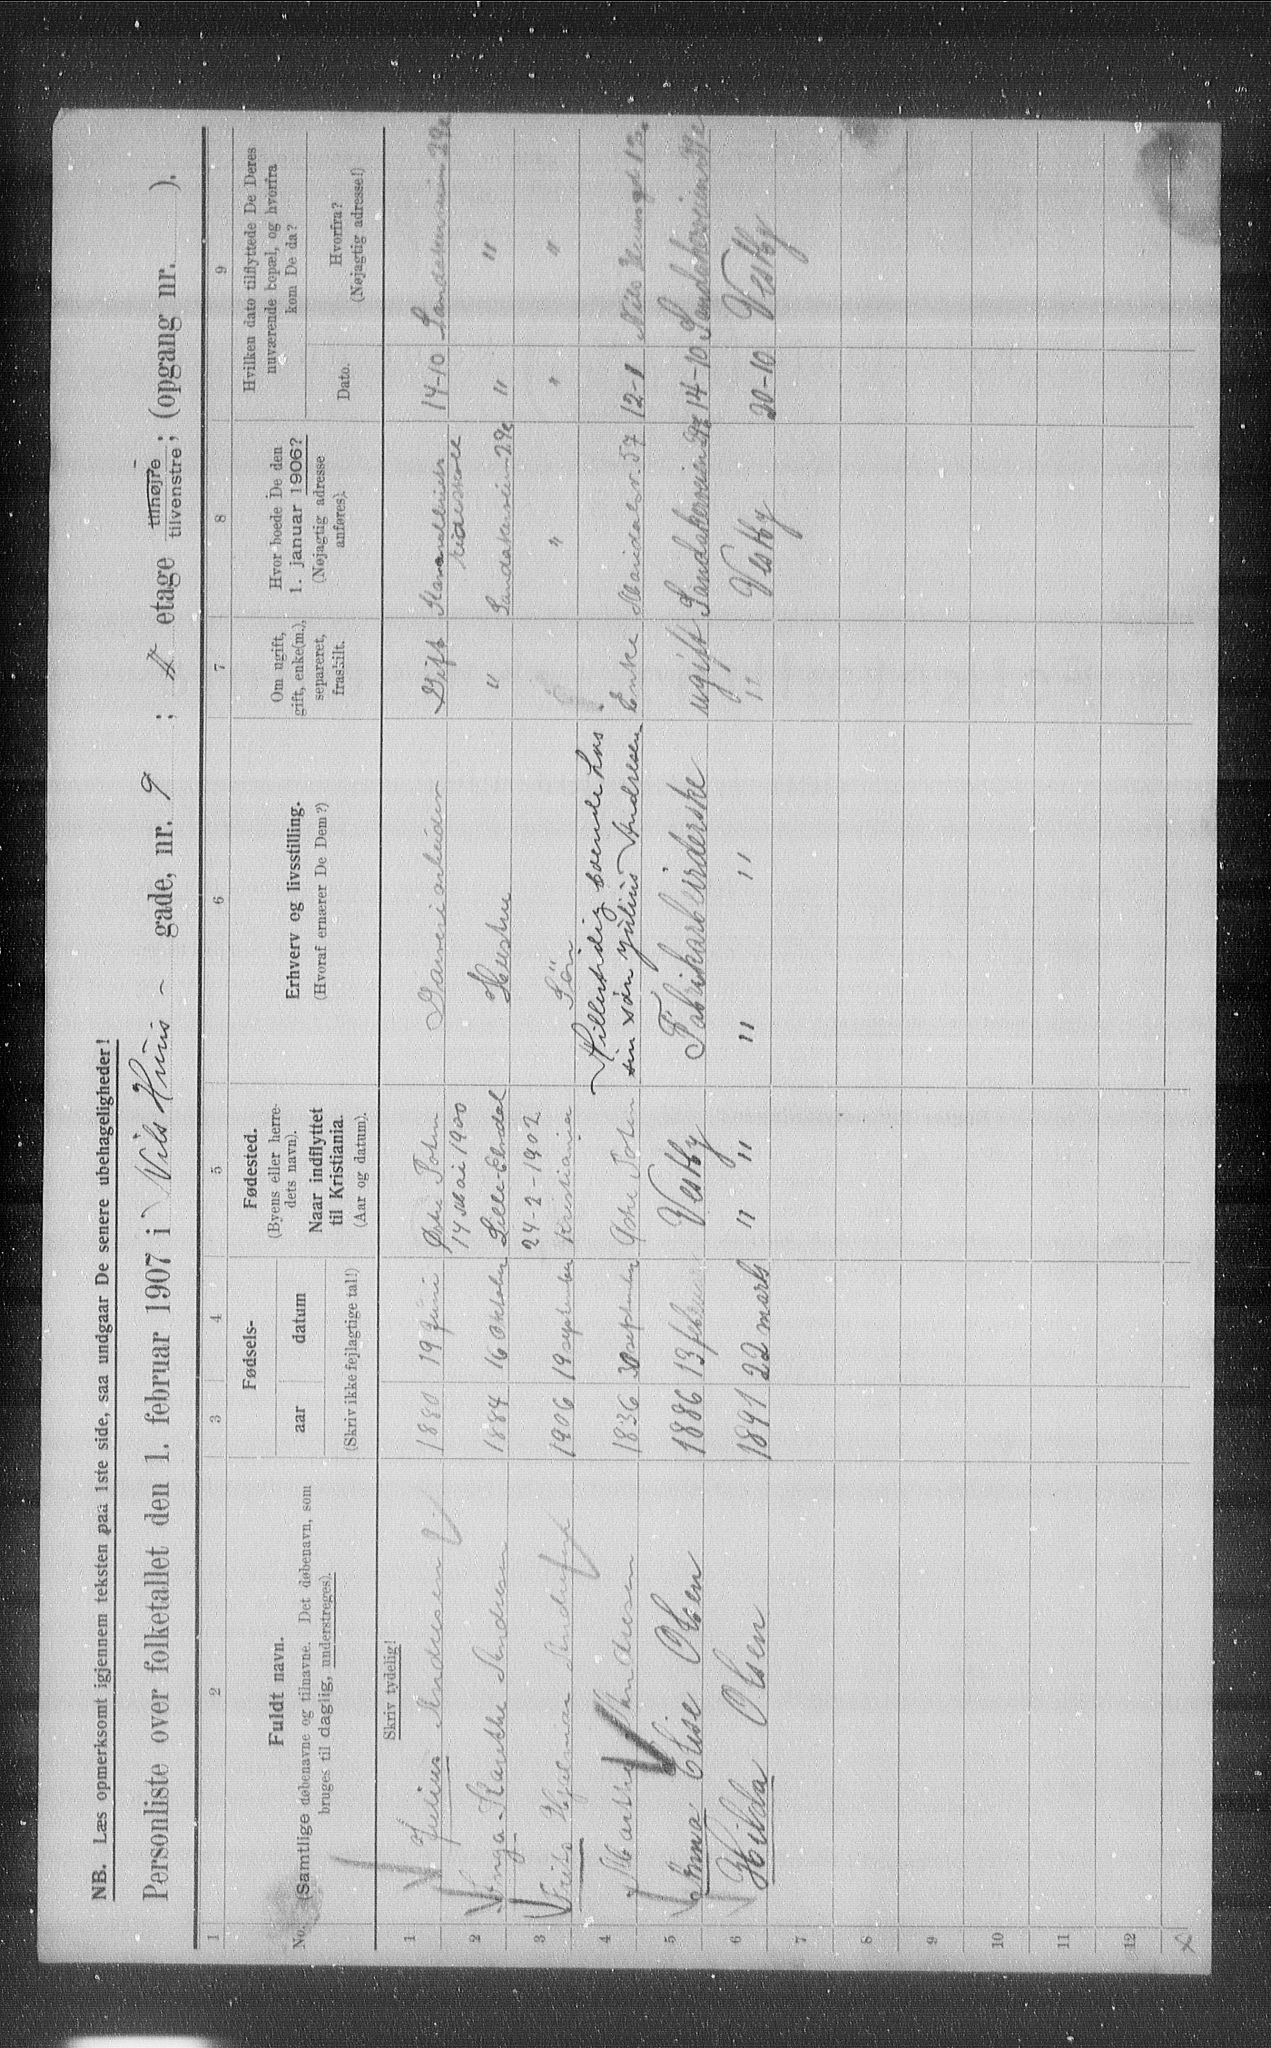 NB. Læs opmerksomt igjennem teksten paa 1ste side, saa undgaar De senere ubehageligheder!
Personliste over folketallet den 1. februar 1907 i Nils Huus - gade, nr. 9 ; etage tilhøjre tilvenstre; (opgang nr. ).
1 2 3 4 5 6 7 8 9
No.
Fuldt navn.
(Samtlige døbenavne og tilnavne. Det døbenavn, som
bruges til daglig, understreges).
Fødsels-
aar datum
(Skriv ikke fejlagtige tal!)
Fødested.
(Byens eller herre-
dets navn).
Naar indflyttet
til Kristiania.
(Aar og datum).
Erhverv og livsstilling.
(Hvoraf ernærer De Dem?)
Om ugift,
gift, enke(m.),
separeret,
fraskilt.
Hvor boede De den
1. januar 1906?
(Nøjagtig adresse
anføres).
Hvilken dato tilflyttede De Deres
nuværende bopæl, og hvorfra
kom De da?
Dato.
Hvorfra?
(Nøjagtig adresse!)
Skriv tydelig!
1 Julius Andresen 1880 19 Juni Østre Toten 14 Mai 1900 Garveriarbeider Gift 14-10 Sandakerveien 29e
2 Inga Marthe Andresen 1884 16 Oktober Lille-Elvdal 24-2-1902 Hustru " Sandakerveien 29e " "
3 Hjelmar 1906 19 september Kristiania Søn " " "
4 Marthe Andresen 1836 30 september Østre Toten Midlertidig boende hos sin søn Julius Andresen Enke Maridalsv. 57 12-1 Nils Huusgd 12
5 Anna Elise Olsen 1886 13 februar Vestby Fabrikarbeiderske ugift Sandakerveien 29e 14-10 Sandakerveien 29e
6 Hilda Olsen 1891 22 marts " " " " " Vestby 20-10 Vestby
7
8
9
10
11
12